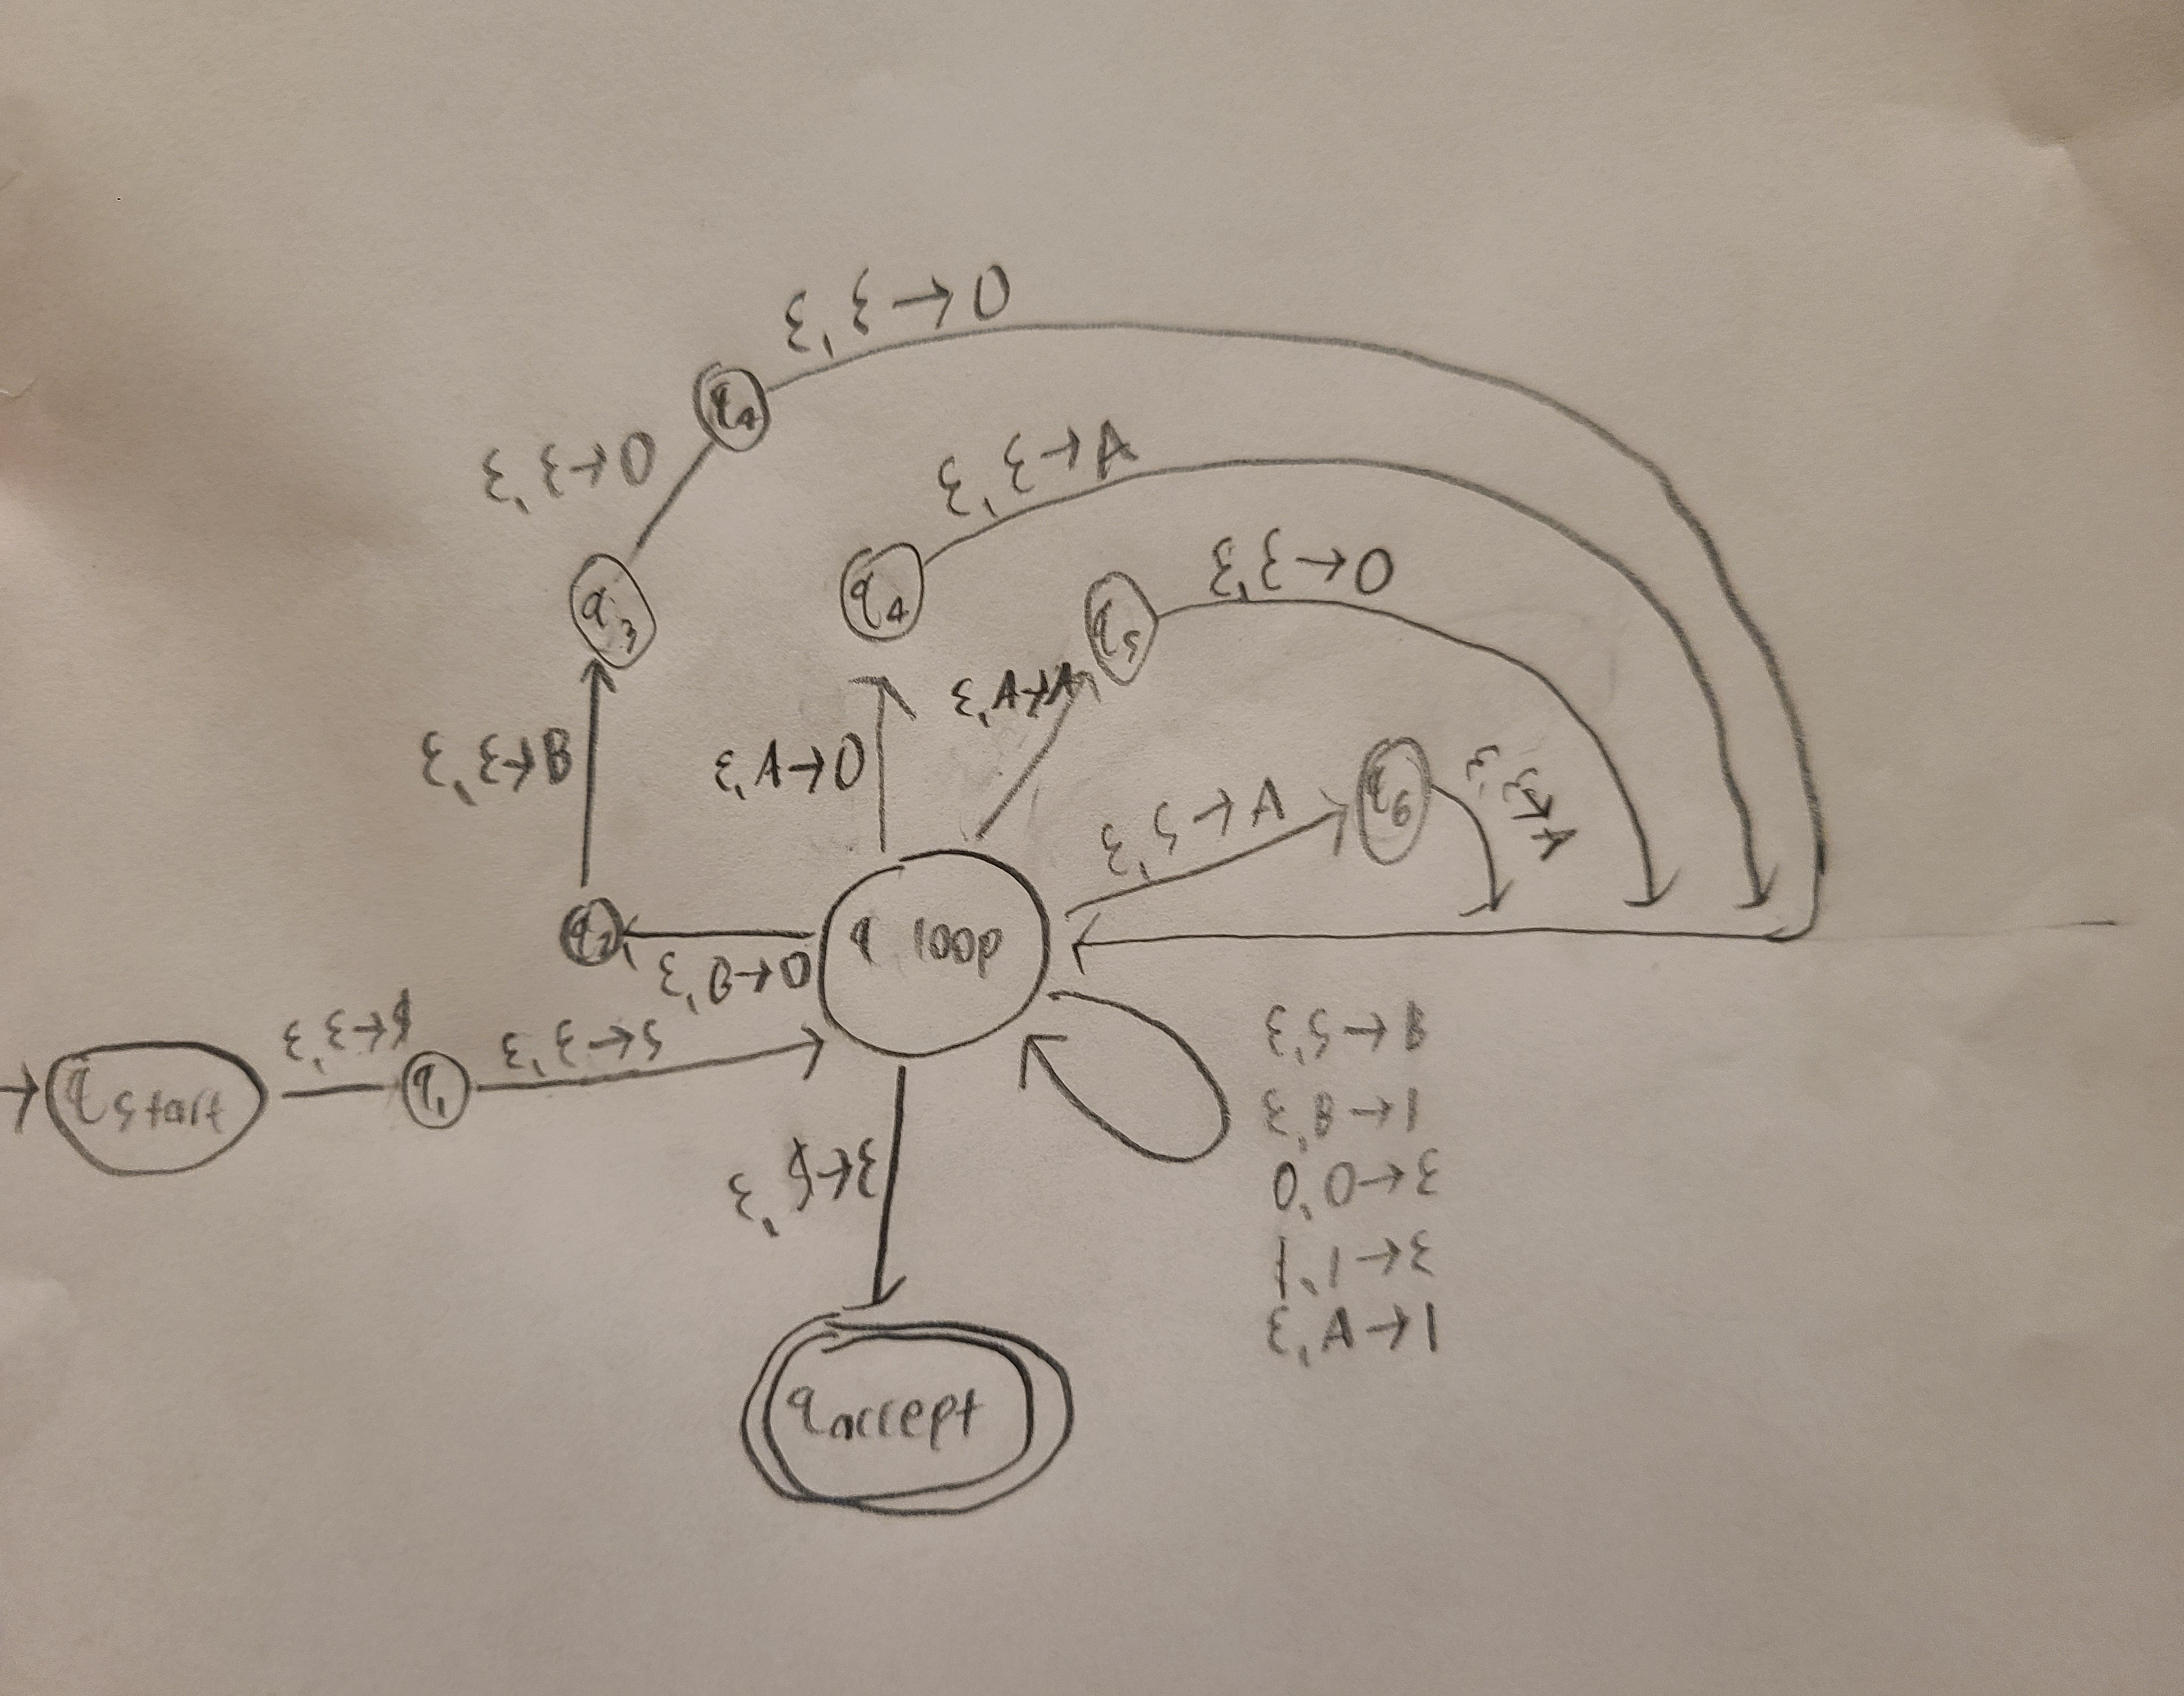 ε, ε→0
q₄
ε, ε→0
ε, ε→A
q₃
q₄
ε, ε→0
q₅
ε, ε→B
ε, A→0
ε, A→A
q₆
ε, ε→A
ε, S→A
q₂
q loop
ε, B→0
q start
ε, ε→$
q₁
ε, ε→S
ε, S→B
ε, B→1
0, 0→ε
1, 1→ε
ε, A→1
ε, $→ε
q accept